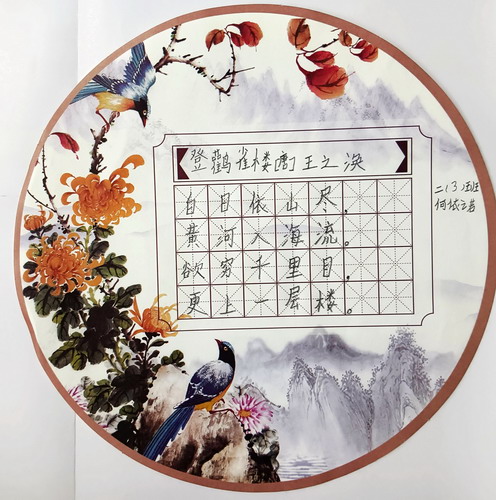 登鹳雀楼[唐]王之涣
白日依山尽，
黄河入海流。
欲穷千里目，
更上一层楼。
二(3)班